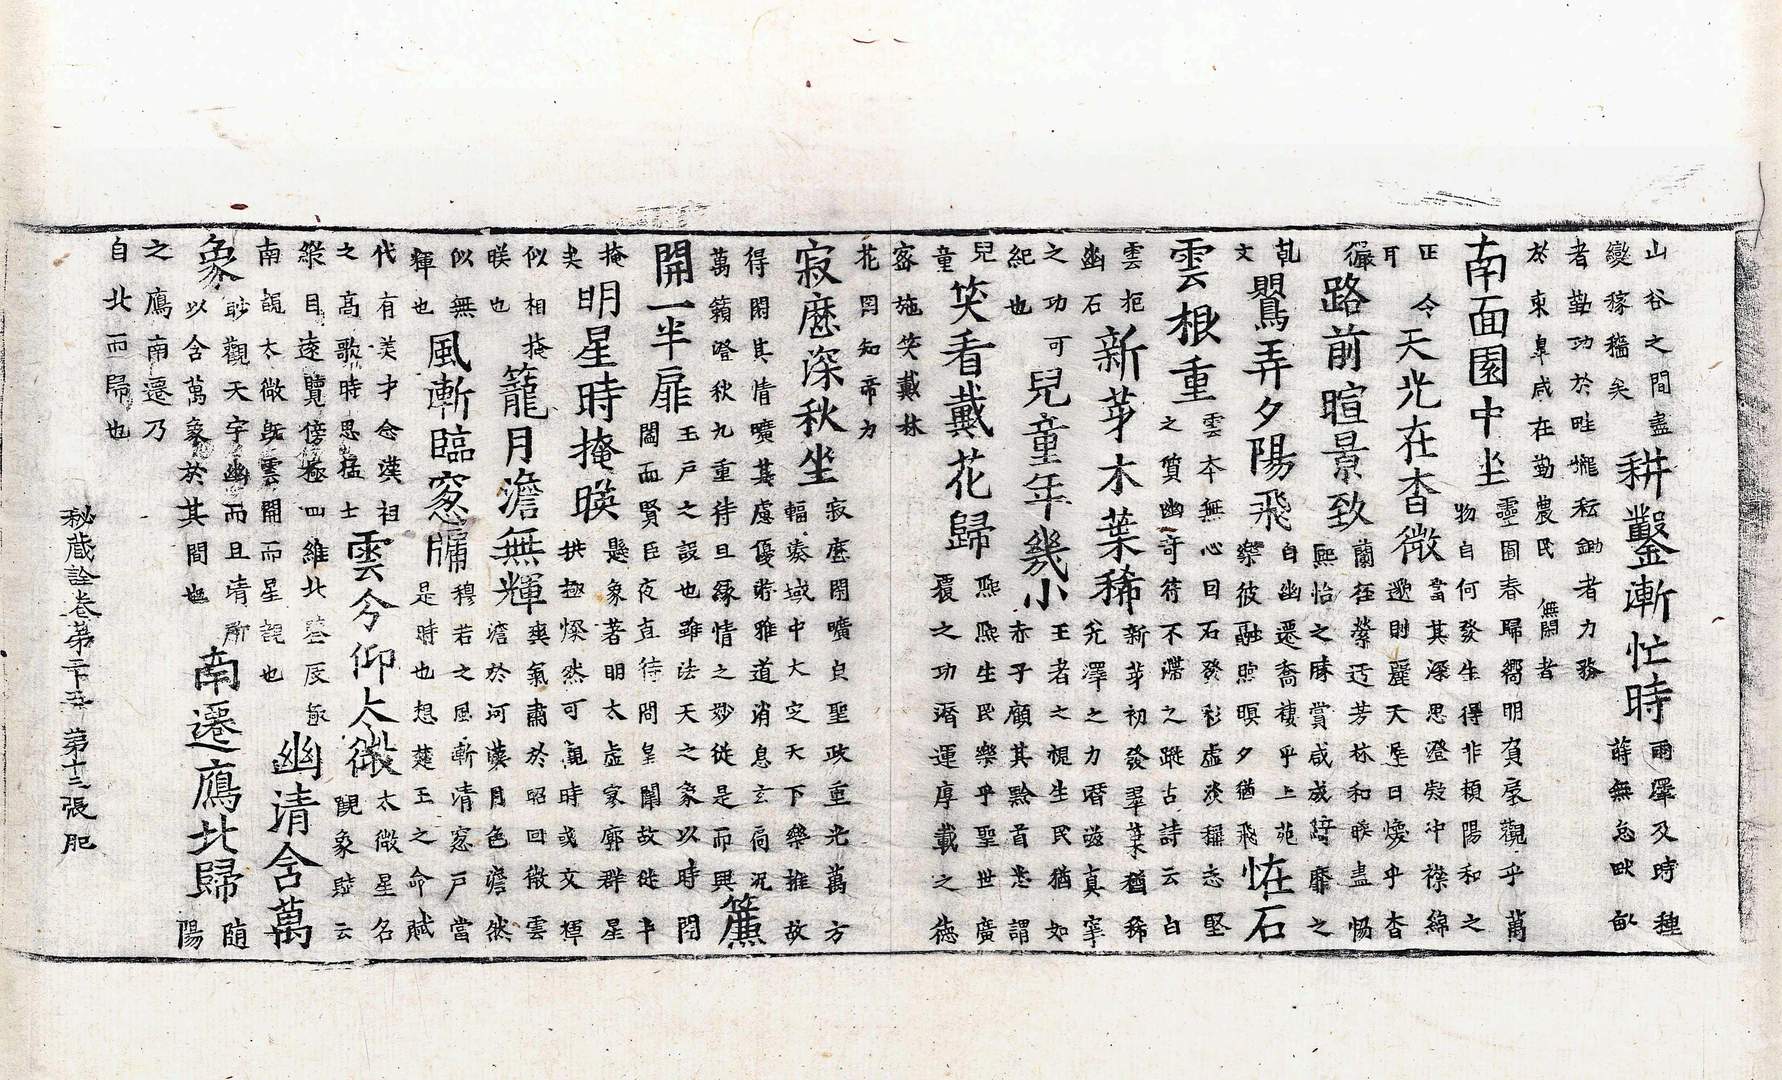 山谷之間盡
變稼穡矣
耕鑿漸忙時
雨澤及時種
蒔無怠畎畝
者勤功於畦壠耘鋤者力務
於東皐咸在勤農民無閑者
南面園中坐
靈囿春歸嚮明負扆觀乎萬
物自何發生得非類陽和之
正令
耳
天光在杳微
當其深思澄凝冲襟綿
邈則麗天星日懷乎杳
儼
路前暄景致
蘭徑縈迂芳林和暖盡暢
熙怡之賞咸成綺靡之
乾
文
鸎弄夕陽飛
自幽遷喬棲乎上苑
樂彼融煦暝夕猶飛
恠石
雲根重
雲本無心曰石發彩虛淡積志堅
之質幽奇符不之蹤古詩云白
雲抱
幽石
新芽木葉稀
新芽初發翠葉猶稀
光澤之力潛滋真宰
之功可
紀也
兒童年幾小
王者之視生民猶如
赤子顧其黔首悉謂
兒
童
笑看戴花歸
熙熙生民樂乎聖世廣
覆之功潛運厚載之德
密施笑戴林
花罔知帝力
寂歷深秋坐
寂歷閑曠貞聖政重光萬方
輻湊域中大定天下樂推故
得閑其情曠其慮優游雅道消息玄同況
萬籟嘹秋九重待旦緣情之妙從是而興
簾
開一半扉
玉戶之設也雖法天之象以時開
闔而賢臣夜直待問皇闈故從半
掩
夫
明星時掩暎
懸象著明太虛寥廓群星
拱極燦然可觀時或文輝
似相掩
暎也
籠月澹無輝
爽氣肅於昭回微雲
澹於河漢月色澹然
似無
輝也
風漸臨窓牖
穆若之風漸清窓戶當
是時也想楚王之命賦
代有美才念漢祖
之高歌時思猛士
雲兮仰太微
太微星名
覩象騐云
縱目遠覽傍極四維北望辰極
南覿太微旣雲開而星覿也
幽清含萬
象
眇觀天宇幽而且清所
以含萬象於其間也
南遷鴈北歸
隨
陽
之鴈南遷乃
自北而歸也
秘蔵詮卷第二十五 第十三張 肥